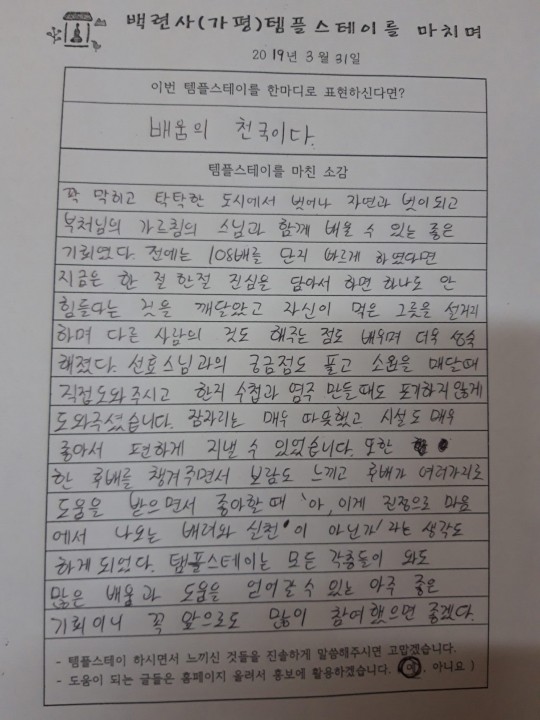 백련사(가평)템플스테이를 마치며
2019년 3월 31일
이번 템플스테이를 한마디로 표현하신다면?
배움의 천국이다.
템플스테이를 마친 소감
꽉 막히고 탁탁한 도시에서 벗어나 자연과 벗이되고
부처님의 가르침의 스님과 함께 배울 수 있는 좋은
기회였다. 전에는 108배를 단지 빠르게 하였다면
지금은 한 절 한절 진심을 담아서 하면 하나도 안
힘들다는 것을 깨달았고 자신이 먹은 그릇을 설거지
하며 다른 사람의 것도 해주는 점도 배우며 더욱 성숙
해졌다. 선효스님과의 궁금점도 풀고 소원을 매달때
직접도와주시고 한지 수첩과 염주 만들때도 포기하지않게
도와주셨습니다. 잠자리는 매우 따뜻했고 시설도 매우
좋아서 편하게 지낼 수 있었습니다. 또한
한 후배를 챙겨주면서 보람도 느끼고 후배가 여러가지로
도움을 받으면서 좋아할 때 '아, 이게 진정으로 마음
에서 나오는 배려와 실천'이 아닌가! 라는 생각도
하게 되었다. 템플스테이는 모든 각층들이 와도
많은 배움과 도움을 얻어갈 수 있는 아주 좋은
기회이니 꼭 앞으로도 많이 참여했으면 좋겠다.
- 템플스테이 하시면서 느끼신 것들을 진솔하게 말씀해주시면 고맙겠습니다.
- 도움이 되는 글들은 홈페이지 올려서 홍보에 활용하겠습니다. (예, 아니요)